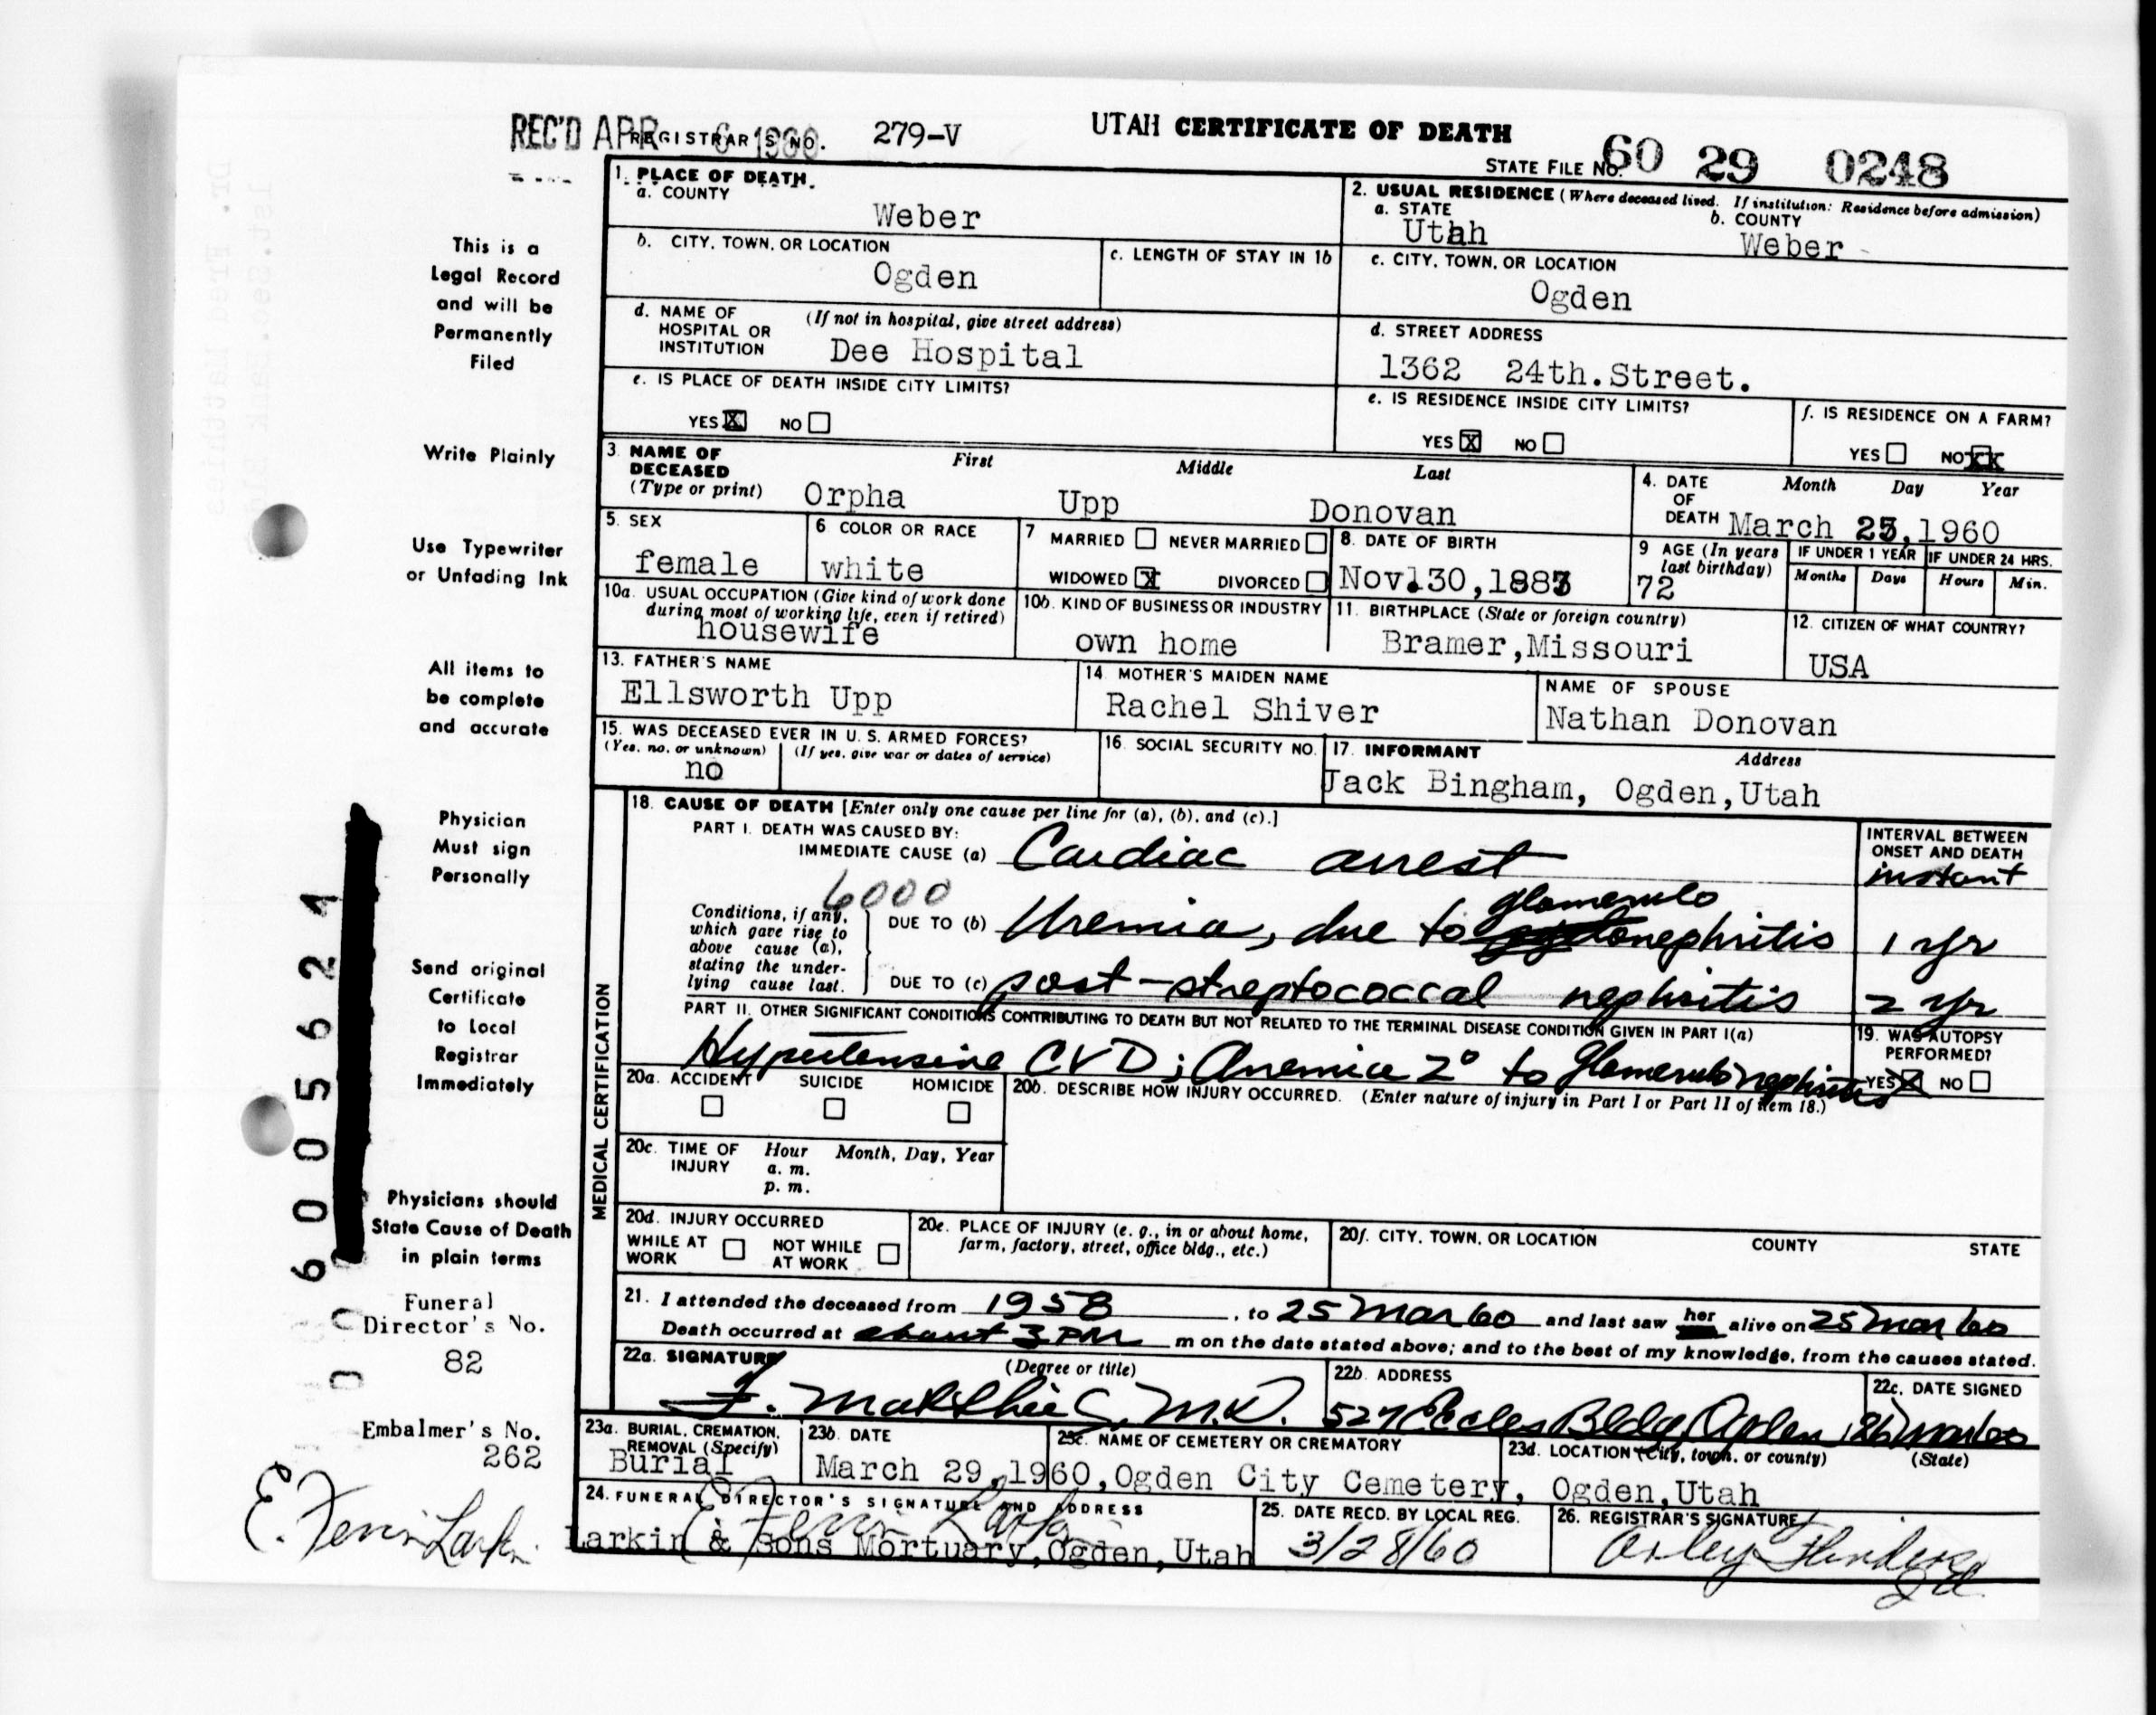 REC'D APR 6 1960 REGISTRAR'S NO. 279-V UTAH CERTIFICATE OF DEATH
STATE FILE NO. 60 29 0248
1. PLACE OF DEATH.
a. COUNTY
Weber
2. USUAL RESIDENCE (Where deceased lived. If institution: Residence before admission)
a. STATE b. COUNTY
Utah Weber
b. CITY, TOWN, OR LOCATION
Ogden
c. LENGTH OF STAY IN 1b
c. CITY, TOWN, OR LOCATION
Ogden
d. NAME OF HOSPITAL OR INSTITUTION (If not in hospital, give street address)
Dee Hospital
d. STREET ADDRESS
1362 24th.Street.
e. IS PLACE OF DEATH INSIDE CITY LIMITS?
YES X NO
e. IS RESIDENCE INSIDE CITY LIMITS?
YES X NO
f. IS RESIDENCE ON A FARM?
YES NO XX
3. NAME OF DECEASED (Type or print) First Middle Last
Orpha Upp Donovan
4. DATE OF DEATH Month Day Year
March 25,1960
5. SEX
female
6 COLOR OR RACE
white
7 MARRIED NEVER MARRIED
WIDOWED X DIVORCED
8. DATE OF BIRTH
Nov.30,1887
9 AGE (In years last birthday)
72
IF UNDER 1 YEAR IF UNDER 24 HRS.
Months Days Hours Min.
10a. USUAL OCCUPATION (Give kind of work done during most of working life, even if retired)
housewife
10b. KIND OF BUSINESS OR INDUSTRY
own home
11. BIRTHPLACE (State or foreign country)
Bramer,Missouri
12. CITIZEN OF WHAT COUNTRY?
USA
13. FATHER'S NAME
Ellsworth Upp
14. MOTHER'S MAIDEN NAME
Rachel Shiver
NAME OF SPOUSE
Nathan Donovan
15. WAS DECEASED EVER IN U. S. ARMED FORCES?
(Yes. no. or unknown) (If yes. give war or dates of service)
no
16. SOCIAL SECURITY NO.
17. INFORMANT Address
Jack Bingham, Ogden,Utah
MEDICAL CERTIFICATION
18. CAUSE OF DEATH [Enter only one cause per line for (a), (b), and (c).]
PART I. DEATH WAS CAUSED BY:
IMMEDIATE CAUSE (a) Cardiac arrest
INTERVAL BETWEEN ONSET AND DEATH
instant
6000
Conditions, if any, which gave rise to above cause (a), stating the underlying cause last.
DUE TO (b) Uremia, due to glomerulonephritis 1 yr
DUE TO (c) post-streptococcal nephritis 2 yr
PART II. OTHER SIGNIFICANT CONDITIONS CONTRIBUTING TO DEATH BUT NOT RELATED TO THE TERMINAL DISEASE CONDITION GIVEN IN PART I(a)
Hypertensive CVD; Anemia 2° to glomerulonephritis
19. WAS AUTOPSY PERFORMED?
YES X NO
20a. ACCIDENT SUICIDE HOMICIDE
20b. DESCRIBE HOW INJURY OCCURRED. (Enter nature of injury in Part I or Part II of item 18.)
20c. TIME OF INJURY Hour Month, Day, Year
a. m.
p. m.
20d. INJURY OCCURRED
WHILE AT WORK NOT WHILE AT WORK
20e. PLACE OF INJURY (e. g., in or about home, farm, factory, street, office bldg., etc.)
20f. CITY, TOWN, OR LOCATION COUNTY STATE
21. I attended the deceased from 1958, to 25 Mar 60 and last saw her alive on 25 Mar 60
Death occurred at about 3 PM m on the date stated above; and to the best of my knowledge, from the causes stated.
22a. SIGNATURE (Degree or title)
F. Matthies M.D.
22b. ADDRESS
527 Eccles Bldg, Ogden
22c. DATE SIGNED
26 Mar 60
23a. BURIAL, CREMATION, REMOVAL (Specify)
Burial
23b. DATE
March 29,1960,
23c. NAME OF CEMETERY OR CREMATORY
Ogden City Cemetery,
23d. LOCATION (City, town, or county) (State)
Ogden,Utah
24. FUNERAL DIRECTOR'S SIGNATURE AND ADDRESS
Larkin & Sons Mortuary,Ogden,Utah
25. DATE RECD. BY LOCAL REG.
3/28/60
26. REGISTRAR'S SIGNATURE
This is a
Legal Record
and will be
Permanently
Filed
Write Plainly
Use Typewriter
or Unfading Ink
All items to
be complete
and accurate
Physician
Must sign
Personally
Send original
Certificate
to Local
Registrar
Immediately
Physicians should
State Cause of Death
in plain terms
Funeral
Director's No.
82
Embalmer's No.
262
E. Fervin Larkin